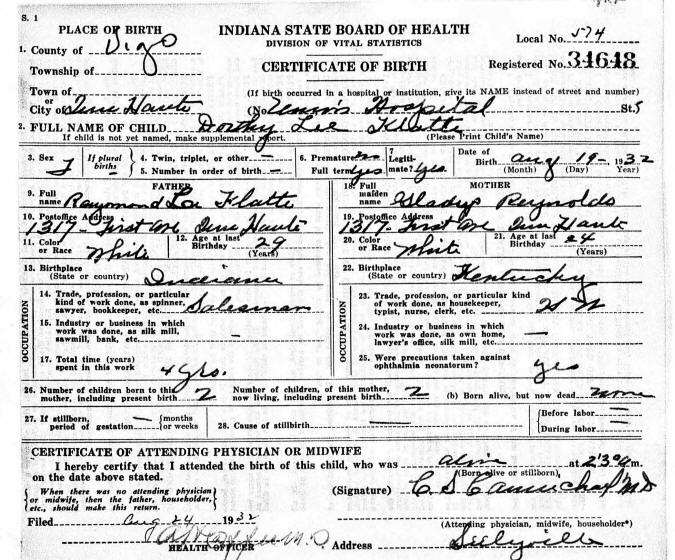 S. 1
PLACE OF BIRTH INDIANA STATE BOARD OF HEALTH
DIVISION OF VITAL STATISTICS
Local No. 574
1. County of Vigo
CERTIFICATE OF BIRTH
Registered No. 34648
Township of
Town of (If birth occurred in a hospital or institution, give its NAME instead of street and number)
or
City of Terre Haute (No Union Hospital St.
2. FULL NAME OF CHILD Dorthy Lee Klatte
If child is not yet named, make supplemental report. (Please Print Child's Name)
3. Sex F If plural births 4. Twin, triplet, or other — 5. Number in order of birth — 6. Premature no Full term yes 7 Legitimate? yes Date of Birth Aug 19 - 1932
(Month) (Day) (Year)
FATHER
9. Full name Raymond Lee Klatte
10. Postoffice Address
1317 - First Ave Terre Haute
11. Color or Race White 12. Age at last Birthday 29
(Years)
13. Birthplace
(State or country) Indiana
OCCUPATION
14. Trade, profession, or particular kind of work done, as spinner, sawyer, bookkeeper, etc. Salesman
15. Industry or business in which work was done, as silk mill, sawmill, bank, etc. —
17. Total time (years) spent in this work 4 yrs.
MOTHER
18. Full maiden name Gladys Reynolds
19. Postoffice Address
1317 - First Ave Terre Haute
20. Color or Race White 21. Age at last Birthday 24
(Years)
22. Birthplace
(State or country) Kentucky
OCCUPATION
23. Trade, profession, or particular kind of work done, as housekeeper, typist, nurse, clerk, etc. H W
24. Industry or business in which work was done, as own home, lawyer's office, silk mill, etc. —
25. Were precautions taken against ophthalmia neonatorum? yes
26. Number of children born to this mother, including present birth 2 Number of children, of this mother, now living, including present birth 2 (b) Born alive, but now dead none
27. If stillborn, period of gestation — {months or weeks 28. Cause of stillbirth — {Before labor — During labor —
CERTIFICATE OF ATTENDING PHYSICIAN OR MIDWIFE
I hereby certify that I attended the birth of this child, who was alive at 2:30 a m.
on the date above stated. (Born alive or stillborn)
{When there was no attending physician or midwife, then the father, householder, etc., should make this return.} (Signature) C S Carmichael M D
Filed Aug 24 1932 (Attending physician, midwife, householder*)
HEALTH OFFICER Address Seelyville